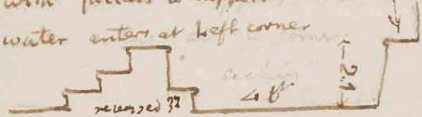 water enters at left corner
reversed ??
4 ft
2.1